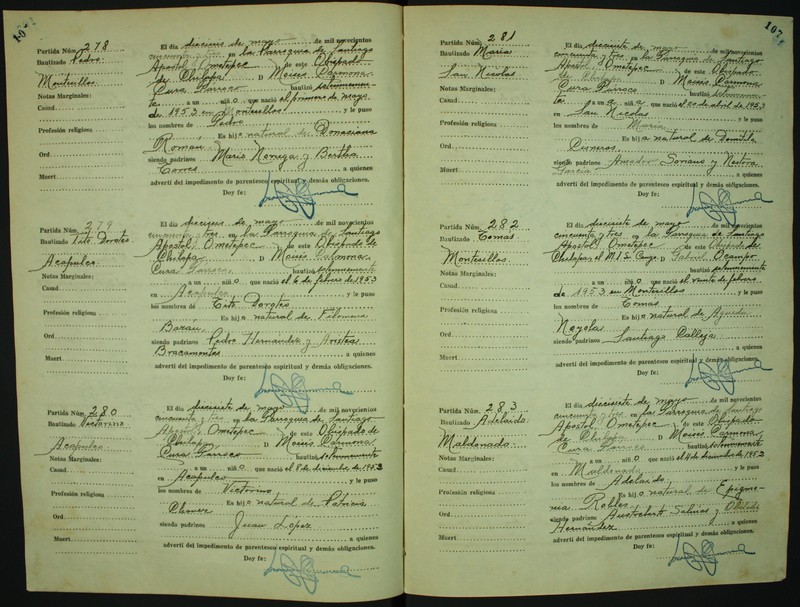 107
Partida Núm. 278
Bautizado Pedro
Montecillos
Notas Marginales:
Casad
Profesión religiosa
Ord
Muert
El día dieciseis de mayo de mil novecientos
cincuenta y tres en la Parroquia de Santiago
Apostol, Ometepec y de este Obispado
de Chilapa D Moisés Carmona
Cura Parroco bautizó solemnemen-
te a un niñ o que nació el primero de mayo
de 1953 en Montecillos y le puso
los nombres de Pedro
Es hijo natural de Donaciana
Román
siendo padrinos Mario Noriega y Bertha
Torres a quienes
advertí del impedimento de parentesco espiritual y demás obligaciones.
Doy fe:
Partida Núm. 279
Bautizado Tito Doroteo
Acapulco
Notas Marginales:
Casad
Profesión religiosa
Ord
Muert
El día dieciseis de mayo de mil novecientos
cincuenta y tres en la Parroquia de Santiago
Apostol, Ometepec y de este Obispado de
Chilapa D Moisés Carmona
Cura Parroco bautizó solemnemente
a un niñ o que nació el 6 de febrero de 1953
en Acapulco y le puso
los nombres de Tito Doroteo
Es hijo natural de Filomena
Bazan
siendo padrinos Pedro Hernandez y Aristea
Bracamontes a quienes
advertí del impedimento de parentesco espiritual y demás obligaciones.
Doy fe:
Partida Núm. 280
Bautizado Victorino
Acapulco
Notas Marginales:
Casad
Profesión religiosa
Ord
Muert
El día diecisiete de mayo de mil novecientos
cincuenta y tres en la Parroquia de Santiago
Apostol, Ometepec y de este Obispado de
Chilapa D Moisés Carmona
Cura Parroco bautizó solemnemente
a un niñ o que nació el 8 de diciembre de 1952
en Acapulco y le puso
los nombres de Victorino
Es hijo natural de Patricia
siendo padrinos Juan Lopez
a quienes
advertí del impedimento de parentesco espiritual y demás obligaciones.
Doy fe:
107
Partida Núm. 281
Bautizado Maria
San Nicolas
Notas Marginales:
Casad
Profesión religiosa
Ord
Muert
El día diecisiete de mayo de mil novecientos
cincuenta y tres en la Parroquia de Santiago
Apostol, Ometepec y de este Obispado
de Chilapa D Moisés Carmona
Cura Parroco bautizó solemnemen-
te a un a niñ a que nació el 20 de abril de 1953
en San Nicolas y le puso
los nombres de Maria
Es hija natural de Domitila
Cisneros
siendo padrinos Amador Soriano y Nestora
Garcia a quienes
advertí del impedimento de parentesco espiritual y demás obligaciones.
Doy fe:
Partida Núm. 282
Bautizado Tomas
Montecillos
Notas Marginales:
Casad
Profesión religiosa
Ord
Muert
El día diecisiete de mayo de mil novecientos
cincuenta y tres en la Parroquia de Santiago
Apostol, Ometepec de este Obispado de
Chilapa, el M.I. Sr. D Gabriel Ocampo
bautizó solemnemente
a un niñ o que nació el veinte de febrero
de 1953 en Montecillos y le puso
los nombres de Tomas
Es hijo natural de Agueda
Noyola
siendo padrinos Santiago Calleja
a quienes
advertí del impedimento de parentesco espiritual y demás obligaciones.
Doy fe:
Partida Núm. 283
Bautizado Adelaido
Maldonado
Notas Marginales:
Casad
Profesión religiosa
Ord
Muert
El día diecisiete de mayo de mil novecientos
cincuenta y tres en la Parroquia de Santiago
Apostol, Ometepec y de este Obispado
de Chilapa D Moisés Carmona
Cura Parroco bautizó solemnemente
a un niñ o que nació el 4 de diciembre de 1952
en Maldonado y le puso
los nombres de Adelaido
Es hijo natural de Epigme-
nia Robles
siendo padrinos Austreberto Salinas y
Hernández a quienes
advertí del impedimento de parentesco espiritual y demás obligaciones.
Doy fe: